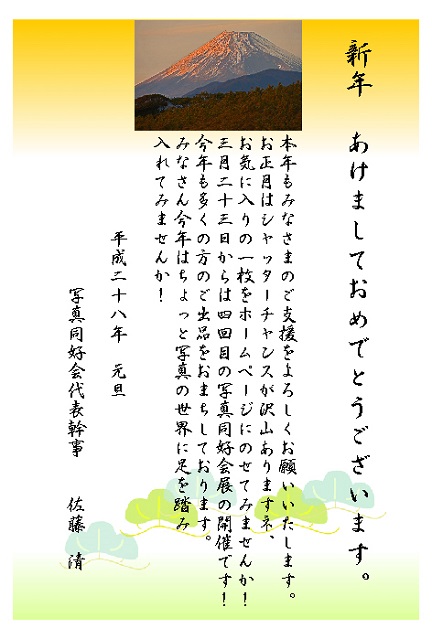 新年 あけましておめでとうございます。
本年もみなさまのご支援をよろしくお願いいたします。
お正月はシャッターチャンスが沢山ありますネ、
お気に入りの一枚をホームページにのせてみませんか!
三月二十三日からは四回目の写真同好会展の開催です!
今年も多くの方のご出品をおまちしております。
みなさん今年はちょっと写真の世界に足を踏み
入れてみませんか!
平成二十八年 元旦
写真同好会代表幹事 佐藤 清